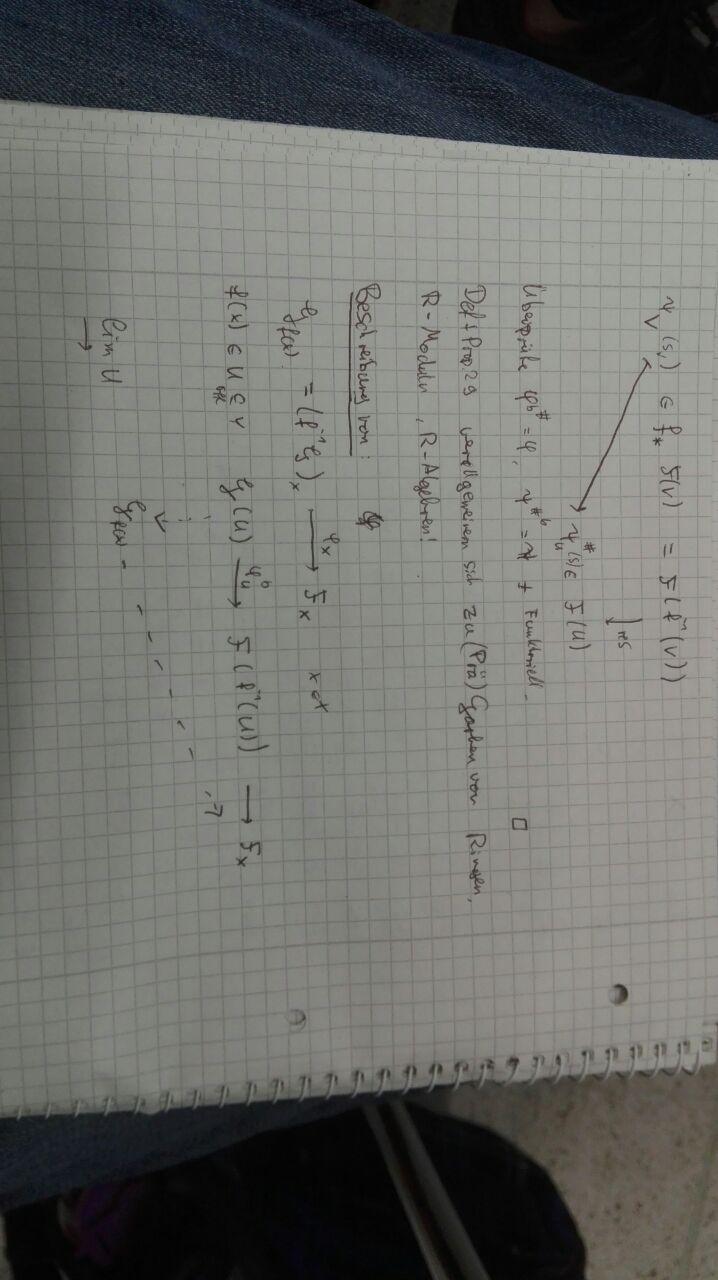 ψ_V(s) ∈ f_* F(V) = F(f⁻¹(V))
↓ res
ψ^#_U(s) ∈ F(U)
Überprüfe φ^{b#} = φ, ψ^{#b} = ψ + Funktoriell. □
Def+Prop 29 verallgemeinern sich zu (Prä)Garben von Ringen,
R-Moduln, R-Algebren!
Beschreibung von:
G_{f(x)} = (f⁻¹G)_x → φ_x → F_x x ∈ X
f(x) ∈ U ⊆ V G(U) → φ^b_U → F(f⁻¹(U)) → F_x
lim U G_{f(x)}
→